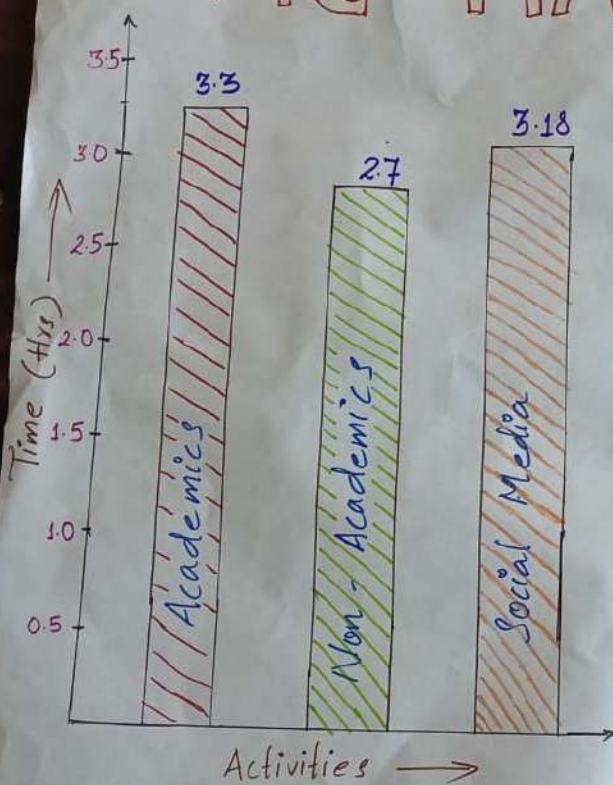 3.5
3.3
3.18
3.0
2.7
2.5
2.0
1.5
1.0
0.5
Time (Hrs)
Academics
Non - Academics
Social Media
Activities